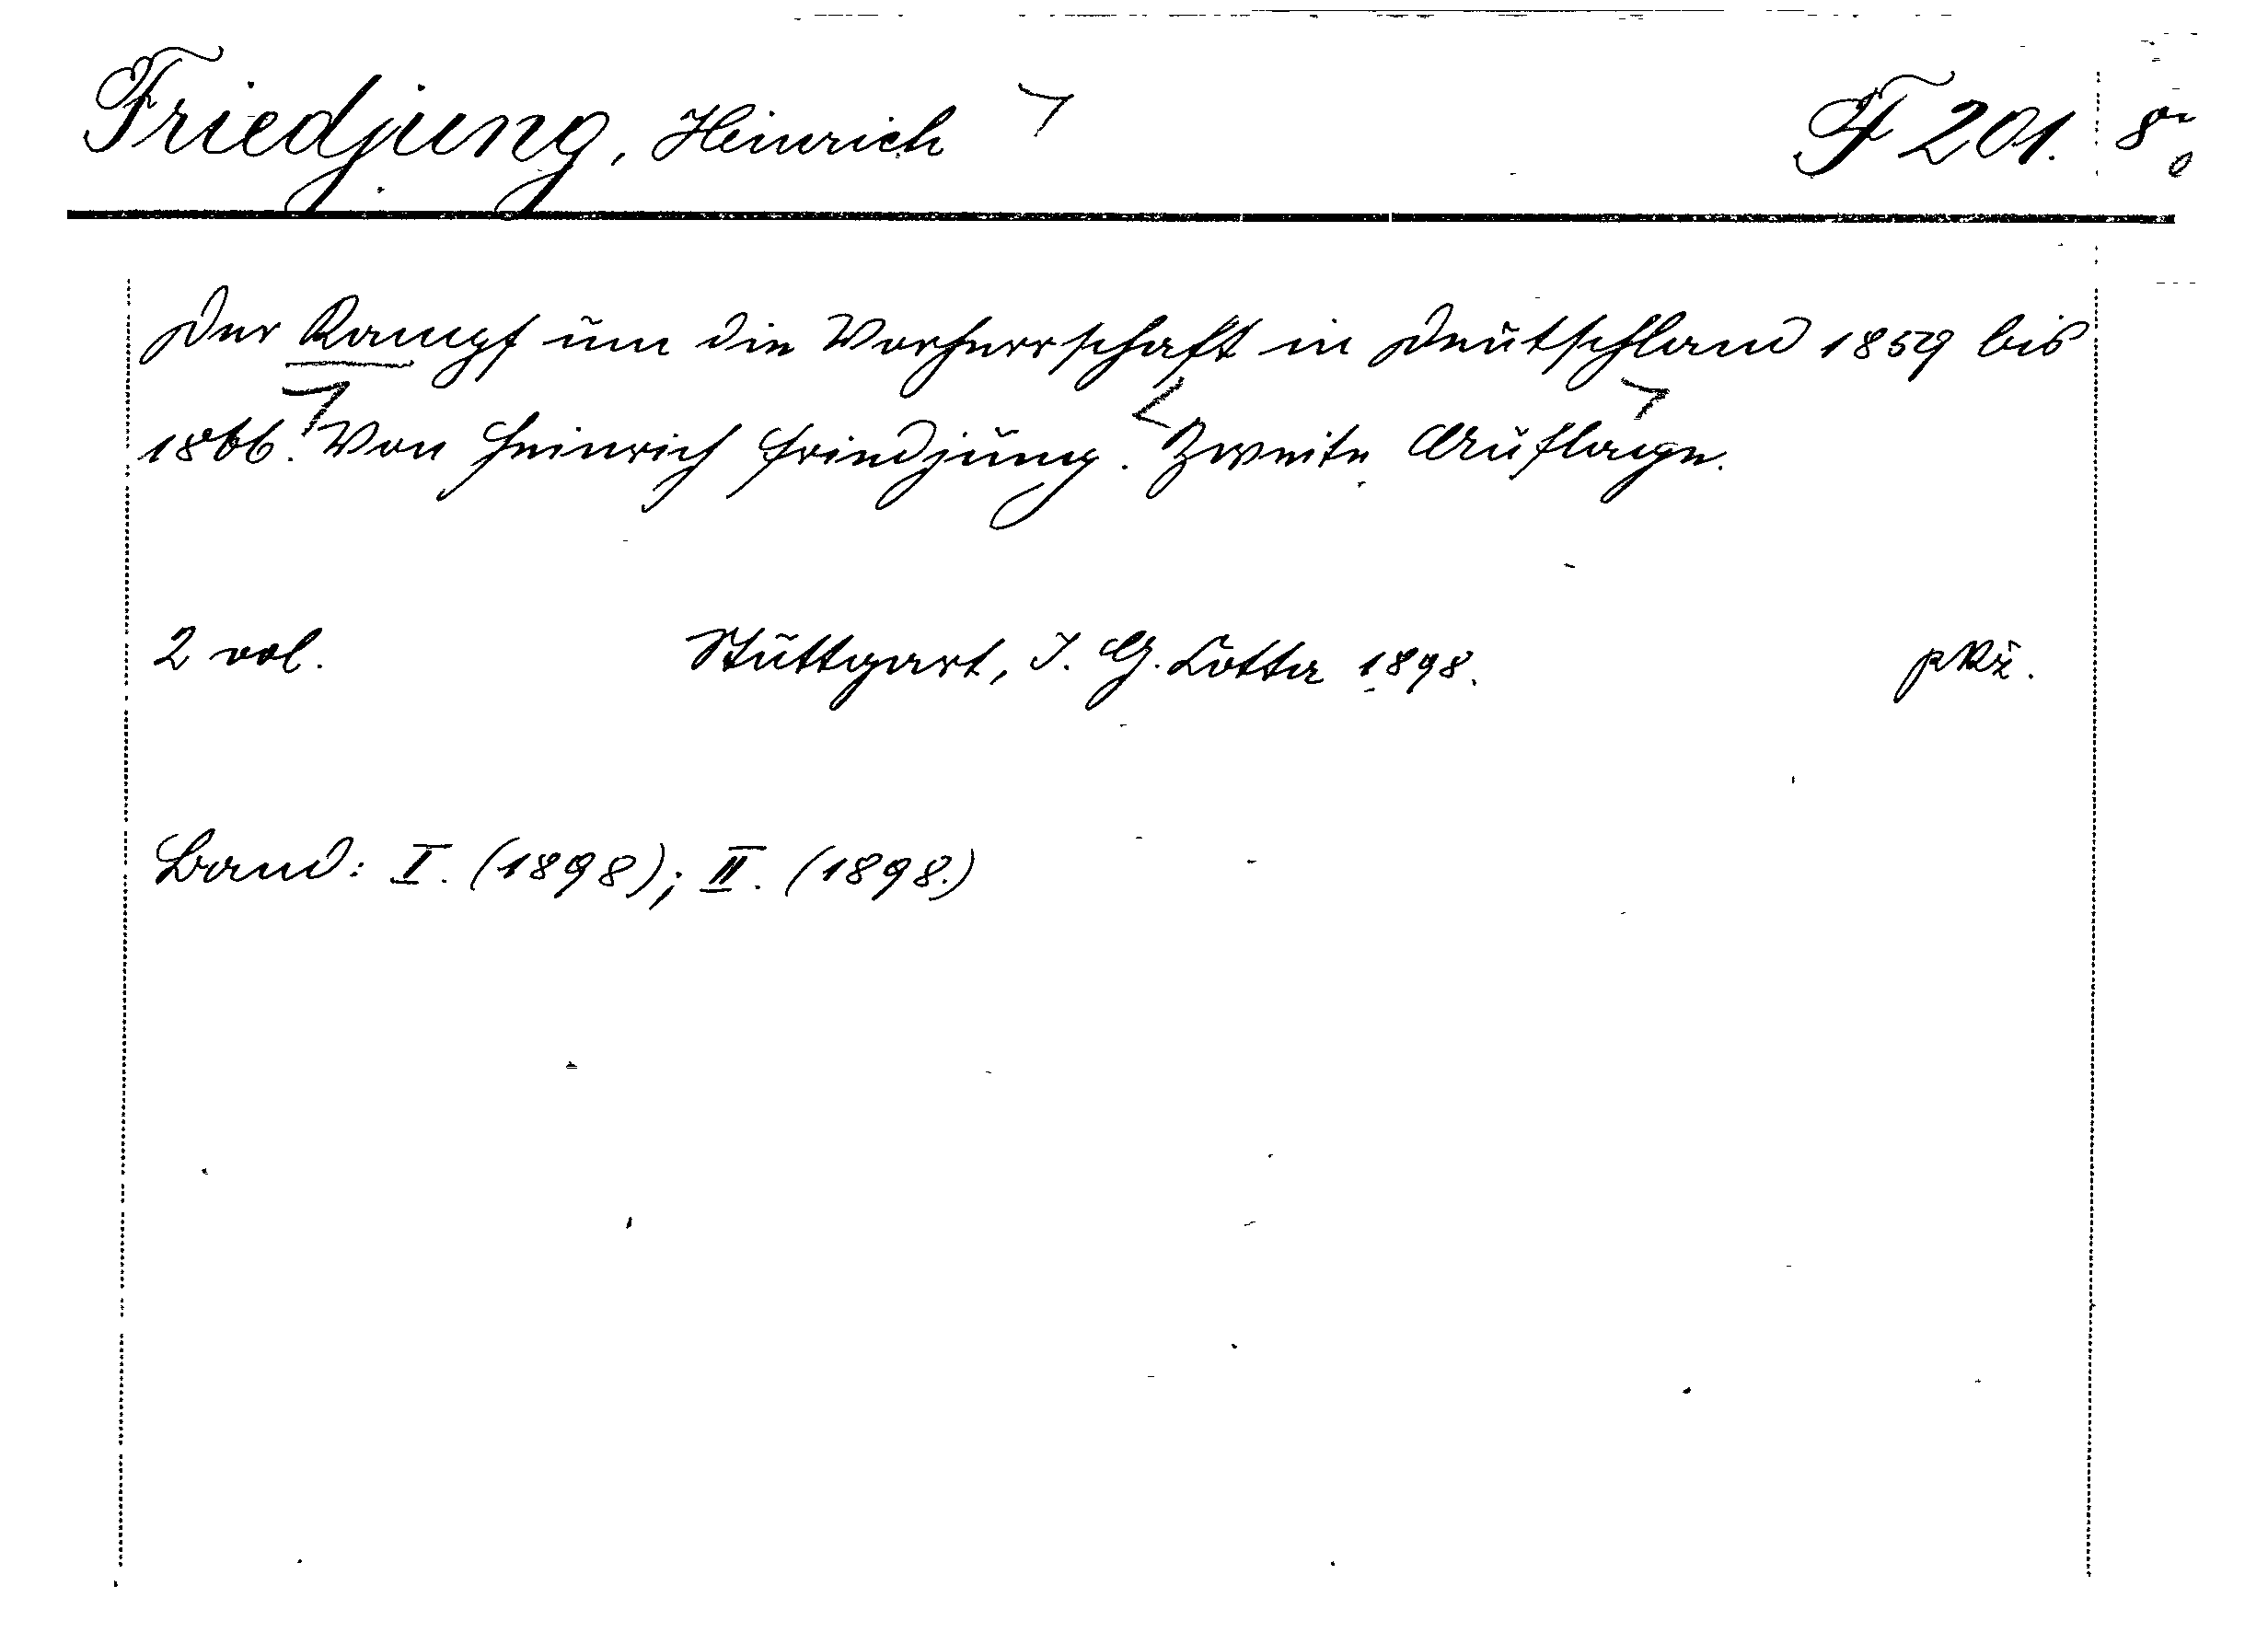 Friedjung, Heinrich F 201. 8°
Der Kampf um die Vorherrschaft in Deutschland 1859 bis
1866. Von Heinrich Friedjung. Zweite Auflage.
2 vol. Stuttgart, J. G. Cotta 1898.
Band: I. (1898); II. (1898.)